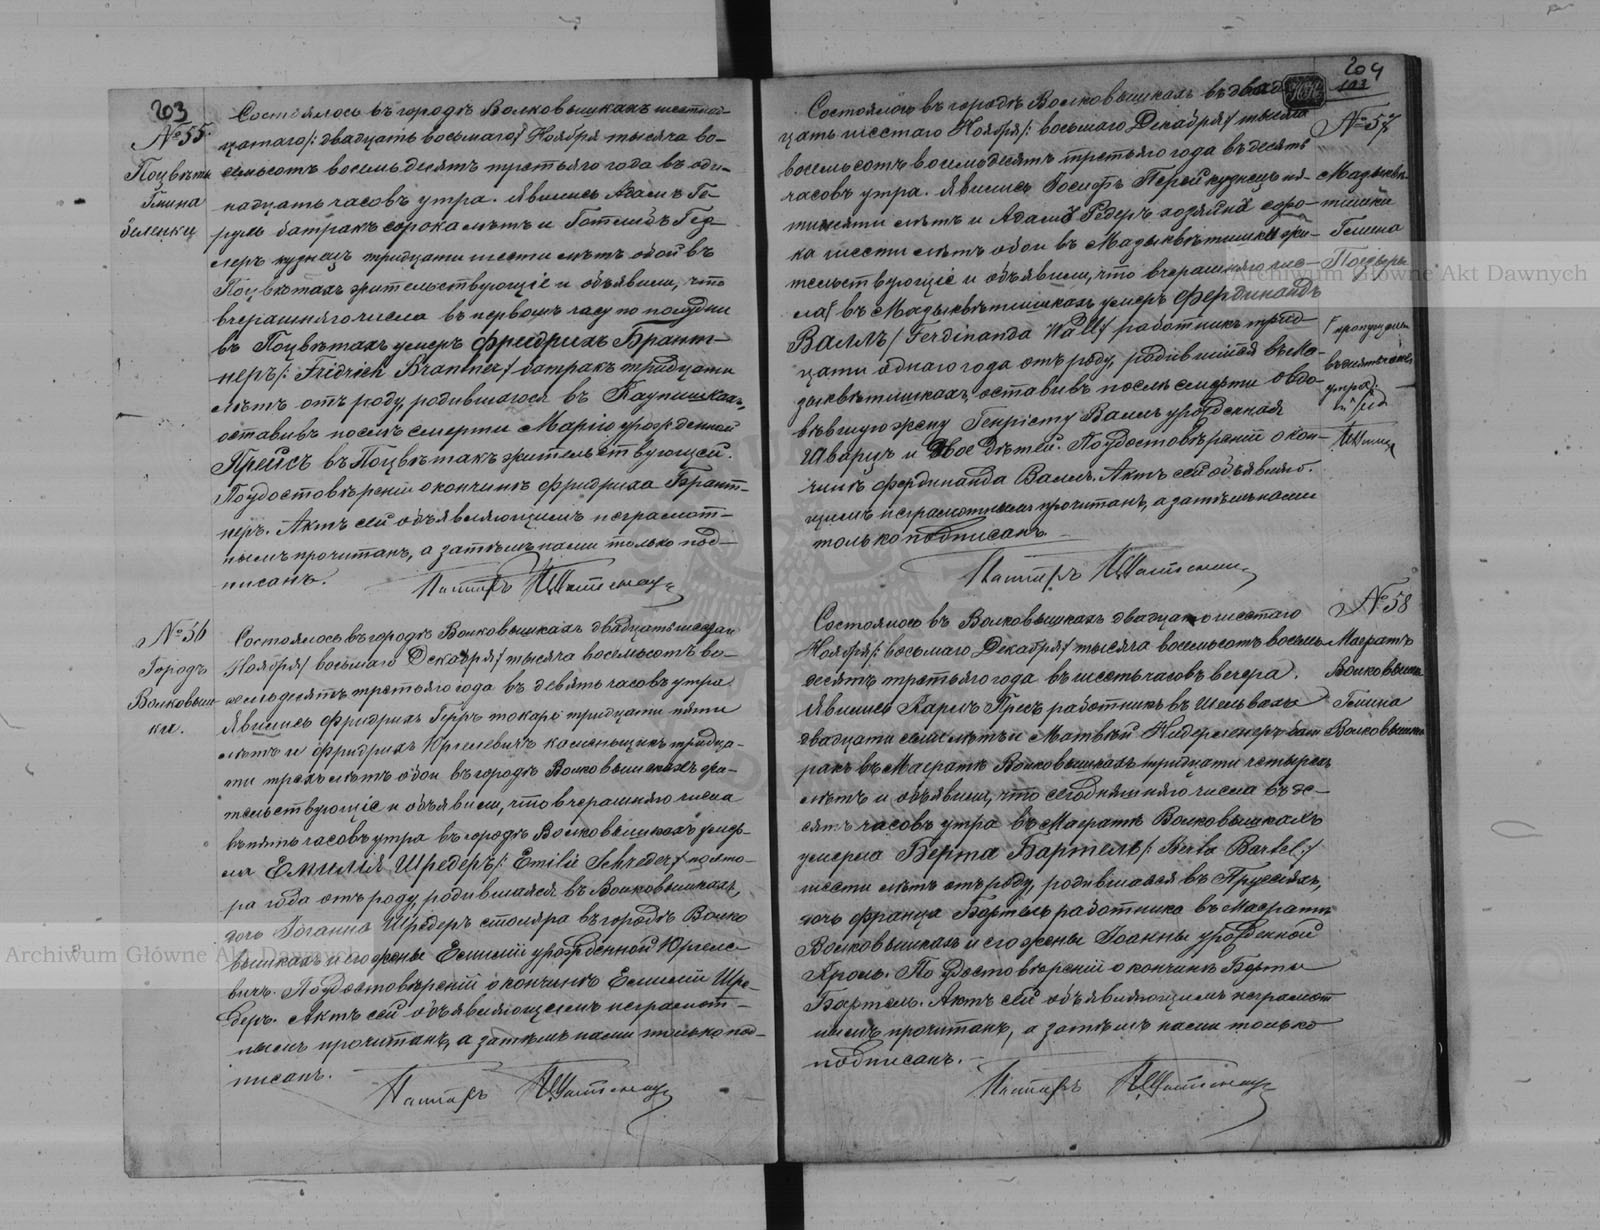 203
№ 55.
Поцвѣты
Гмина
Состоялось въ городѣ Волковышкахъ шестнад-
цатаго /: двадцать восьмаго / Ноября тысяча во-
семьсотъ восемьдесятъ третьяго года въ оди-
надцать часовъ утра. Явились Адамъ Ге-
руль батракъ сорока лѣтъ и Готлибъ Гез-
леръ кузнецъ тридцати шести лѣтъ обои въ
Поцвѣтахъ жительствующіе и объявили, что
вчерашняго числа въ первомъ часу по полудни
въ Поцвѣтахъ умеръ Фридрихъ Брант-
неръ /: Fridrich Brantner / батракъ тридцати
лѣтъ отъ роду, родившагося въ Каупишкахъ,
оставивъ послѣ смерти Марію урожденной
Прейсъ въ Поцвѣтахъ жительствующей.
По удостовѣреніи о кончинѣ Фридриха Брант-
неръ. Актъ сей объявляющимъ неграмот-
нымъ прочитанъ, а затѣмъ нами только под-
писанъ.
Пасторъ
№ 56
Городъ
Волковыш
ки.
Состоялось въ городѣ Волковышкахъ двадцать шестаго
Ноября / восьмаго Декабря / тысяча восемьсотъ во-
семьдесятъ третьяго года въ девять часовъ утра
Явились Фридрихъ Герръ токарь тридцати пяти
лѣтъ и Фридрихъ Юргелевичъ каменьщикъ тридца-
ти трехъ лѣтъ обои въ городѣ Волковышкахъ жи-
тельствующіе и объявили, что вчерашняго числа
въ пять часовъ утра въ городѣ Волковышкахъ умер-
ла Емилія Шредеръ /: Emilie Schreder / полто-
ра года отъ роду, родившаяся въ Волковышкахъ,
дочь Іоганна Шредеръ столяра въ городѣ Волко
вышкахъ и его жены Емиліи урожденной Юргеле-
вичъ. По удостовѣреніи о кончинѣ Емиліи Шре-
деръ. Актъ сей объявляющимъ неграмот-
нымъ прочитанъ, а затѣмъ нами только под-
писанъ.
Пасторъ
204
103
№ 57
Гмина
Состоялось въ городѣ Волковышкахъ въ двад
цать шестаго Ноября /: восьмаго Декабря / тысяча
восемьсотъ восемьдесятъ третьяго года въ десять
часовъ утра. Явились Іосифъ Перей кузнецъ пя-
тидесяти лѣтъ и Адамъ Редеръ хозяинъ соро-
ка шести лѣтъ обои въ Мадыквѣтишкахъ жи-
тельствующіе и объявили, что вчерашняго чис-
ла въ Мадыквѣтишкахъ умеръ Фердинандъ
Валлъ / Ferdinanda Wall / работникъ трид-
цати однаго года отъ роду, родившійся въ Ма-
дыквѣтишкахъ, оставивъ послѣ смерти овдо-
вѣвшую жену Генріету Валлъ урожденная
Шварцъ и двое дѣтей. По удостовѣреніи о кон-
чинѣ Фердинанда Валлъ. Актъ сей объявляю-
щимъ неграмотнымъ прочитанъ, а затѣмъ нами
только подписанъ.
Пасторъ
№ 58
Маератъ
Волковышки
Гмина
Волковышки
Состоялось въ Волковышкахъ двадцать шестаго
Ноября /: восьмаго Декабря / тысяча восемьсотъ восемь
десятъ третьяго года въ шесть часовъ вечера.
Явились Карлъ Пресъ работникъ въ Шельвахъ
двадцати семи лѣтъ и Матвѣй Нидермейеръ бат
ракъ въ Маератѣ Волковышкахъ тридцати четырехъ
лѣтъ и объявили, что сегодняшняго числа въ де-
сять часовъ утра въ Маератѣ Волковышкахъ
умерла Берта Бартель /: Berta Bartel: /
шести лѣтъ отъ роду, родившаяся въ Пруссіяхъ,
дочь Франца Бартель работника въ Маератѣ
Волковышкахъ и его жены Іоанны урожденной
Кроль. По удостовѣреніи о кончинѣ Берты
Бартель. Актъ сей объявляющимъ неграмот
нымъ прочитанъ, а затѣмъ нами только
подписанъ.
Пасторъ
Archiwum Główne Akt Dawnych
Archiwum Główne Akt Dawnych